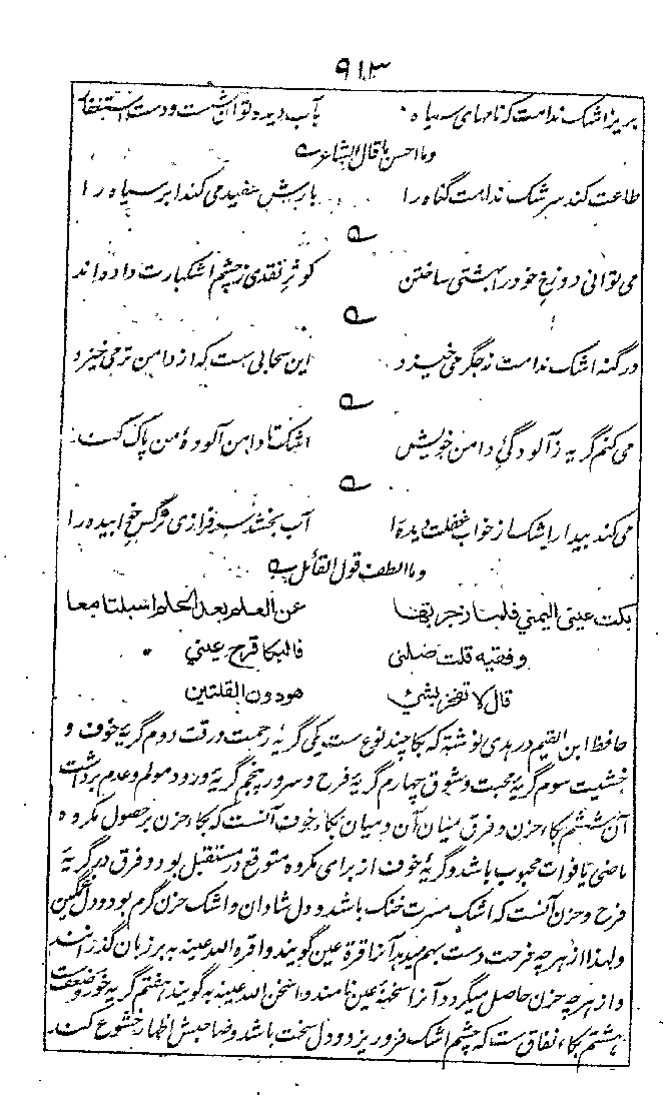 ۹۱۳
بریز اشک ندامت که نامهای سیاه بآب دیده توان شست و دست استغفار
وما احسن ما قال الشاعر
طاعت کند سرشک ندامت گناه را بارش سفید می کند ابر سیاه را
می توانی دوزخ خود را بهشتی ساختن کوثر نقدی ز چشم اشکبارت داده اند
در گنه اشک ندامت ز جگر می خیزد این سحابی ست که از دامن تر می خیزد
می کنم گریه ز آلودگئ دامن خویش اشک تا دامن آلودهٔ من پاک کند
می کند بیدار اشک از خواب غفلت دیده را آب بخشد سرفرازی نرگس خوابیده را
وما الطف قول القائل
بکت عینی الیمنی فلما زجرتها عن العلم بعد الحلم اسبلتا معا
وفقیه قلت صلنی فالبکا قرح عینی
قال لا تفخر بشیٔ هو دون القلتین
حافظ ابن القیم در هدی نوشته که بکا چند نوع ست یکی گریهٔ رحمت و رقت دوم گریهٔ خوف و
خشیت سوم گریهٔ محبت و شوق چهارم گریهٔ فرح و سرور پنجم گریهٔ ورود مولم و عدم برداشت
آن ششم بکاء حزن و فرق میان آن و میان بکاء خوف آنست که بکاء حزن بر حصول مکروه
ماضی یا فوات محبوب باشد و گریهٔ خوف از برای مکروه متوقع در مستقبل بود و فرق در گریهٔ
فرح و حزن آنست که اشک مسرت خنک باشد و دل شادان و اشک حزن گرم بود و دل غمگین
ولهذا از هر چه فرحت دست بهم میدهد آنرا قرة عین گویند و اقر الله عینه به بر زبان گذرانند
و از هر چه حزن حاصل میگردد آنرا سخنة عین نامند و اسخن الله عینه به گویند هفتم گریه خور وضعف
هشتم بکاء نفاق ست که چشم اشک فرو ریزد و دل سخت باشد و صاحبش اظهار خشوع کند